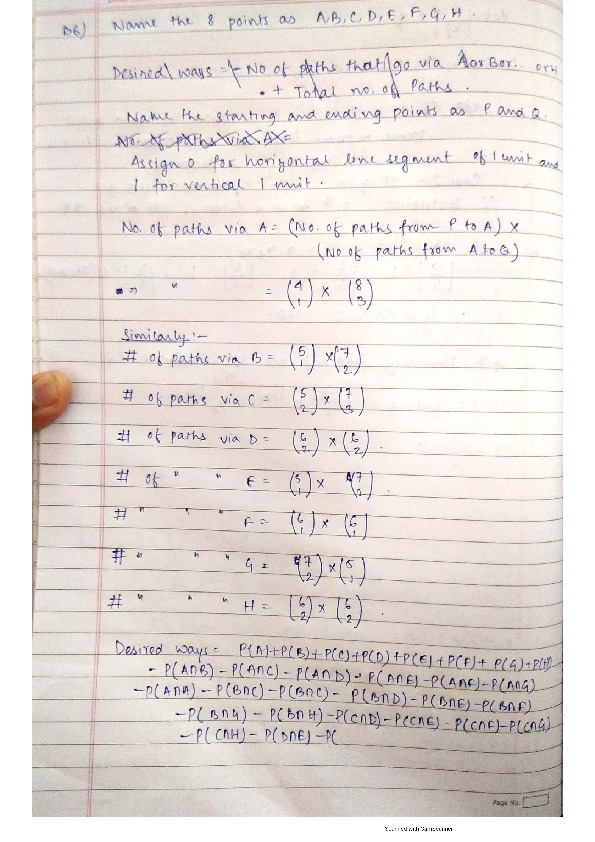 Q6) Name the 8 points as A,B,C,D,E,F,G,H.
Desired ways = - No of paths that go via A or B or.. or H
+ Total no. of Paths.
Name the starting and ending points as P and Q.
No. of paths via A =
Assign 0 for horizontal line segment of 1 unit and
1 for vertical 1 unit.
No. of paths via A = (No. of paths from P to A) ×
(No of paths from A to Q)
⇒ " = (4 1) × (8 3)
Similarly :-
# of paths via B = (5 1) × (7 2)
# of paths via C = (5 2) × (7 3)
# of paths via D = (6 2) × (6 2).
# of " " E = (5 1) × (7 2).
# " " " F = (6 1) × (6 1)
# " " " G = (7 2) × (5 1)
# " " " H = (6 2) × (6 2).
Desired ways = P(A)+P(B)+P(C)+P(D)+P(E)+P(F)+P(G)+P(H)
- P(A∩B) - P(A∩C) - P(A∩D) - P(A∩E) - P(A∩F) - P(A∩G)
- P(A∩H) - P(B∩C) - P(B∩C) - P(B∩D) - P(B∩E) - P(B∩F)
- P(B∩G) - P(B∩H) - P(C∩D) - P(C∩E) - P(C∩F) - P(C∩G)
- P(C∩H) - P(D∩E) - P(
Page No.
Scanned with CamScanner